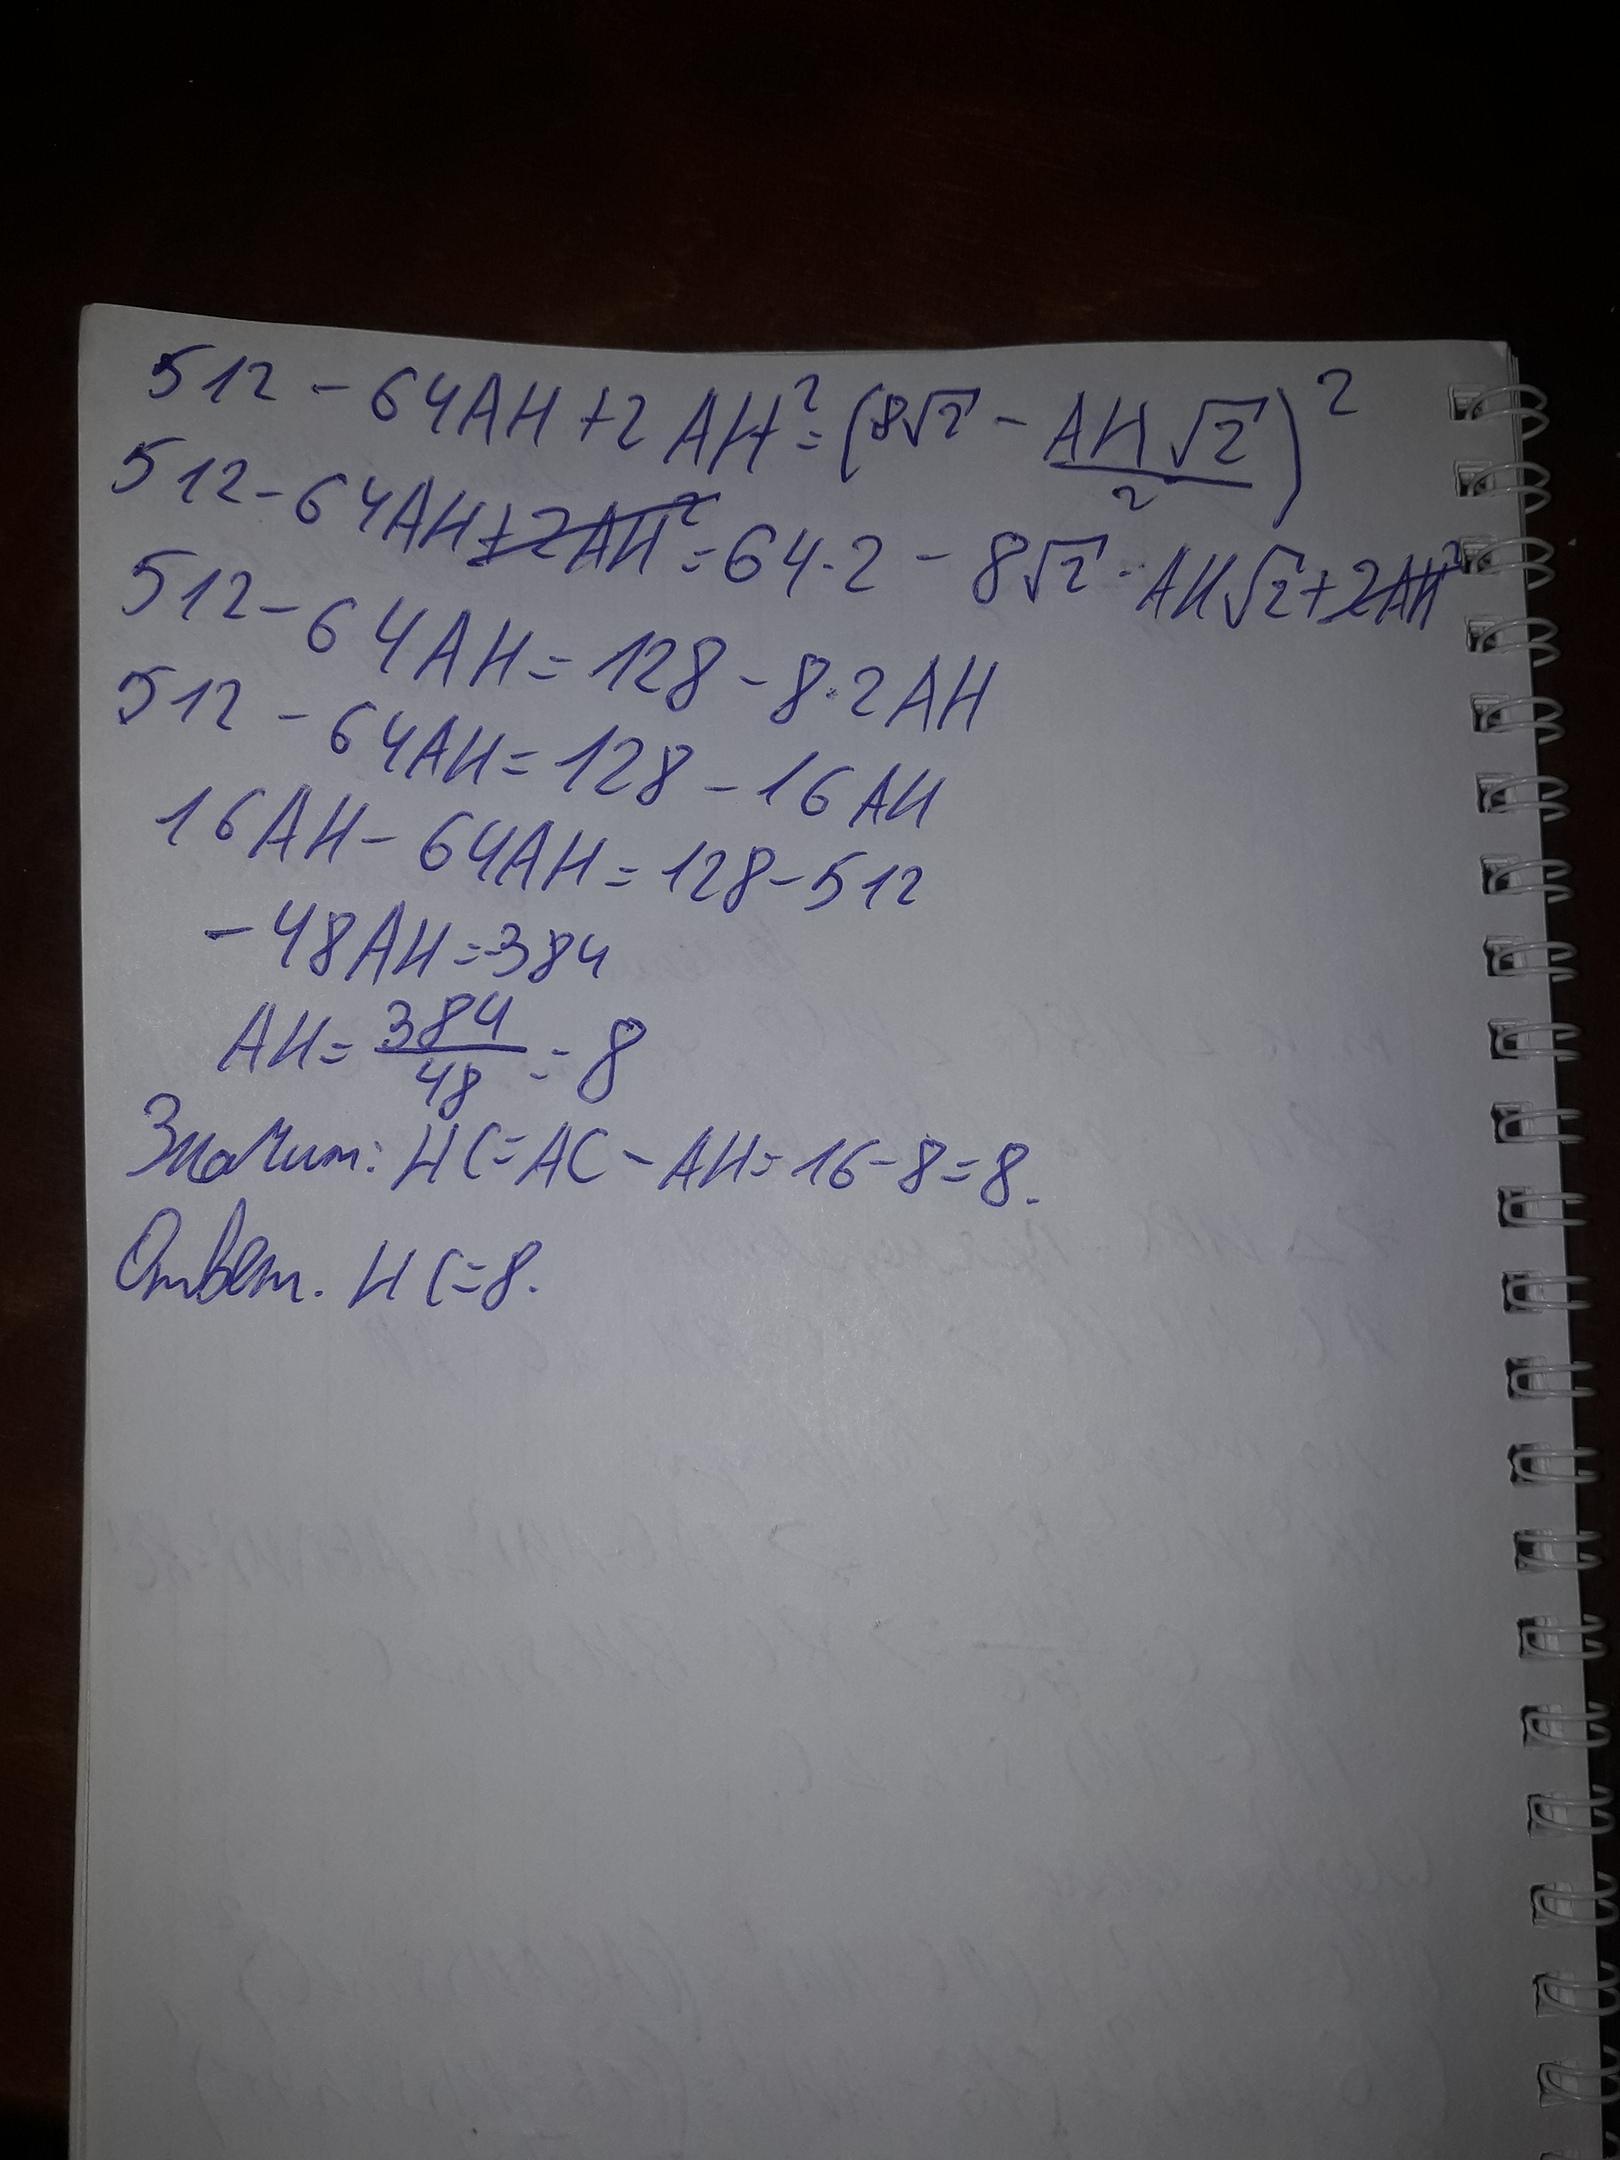 512 - 64AH + 2AH² = (8√2 - AH√2/2)²
512 - 64AH + 2AH² = 64·2 - 8√2·AH√2 + 2AH²
512 - 64AH = 128 - 8·2AH
512 - 64AH = 128 - 16AH
16AH - 64AH = 128 - 512
-48AH = -384
AH = 384/48 = 8
Значит: HC = AC - AH = 16 - 8 = 8.
Ответ. HC = 8.